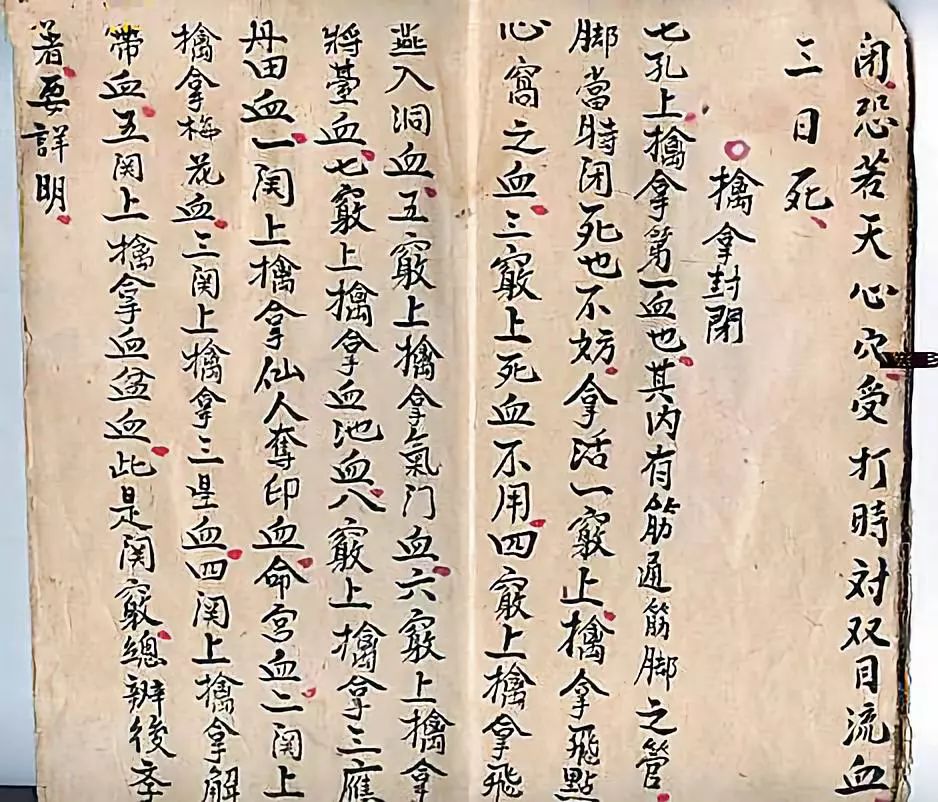 闭恐若天心穴受打時対双目流血
三日死
擒拿封闭
七孔上擒拿第一血也其内有筋通筋脚之管
脚當時闭死也不妨拿活一竅上擒拿飛點
心窩之血三竅上死血不用四竅上擒拿飛
燕入洞血五竅上擒拿氣门血六竅上擒拿
將臺血七竅上擒拿血池血八竅上擒拿三應
丹田血一関上擒拿仙人奪印血命宮血二関上
擒拿梅花血三関上擒拿三星血四関上擒拿解
帶血五関上擒拿血盆血此是関竅總辨後李
者要詳明